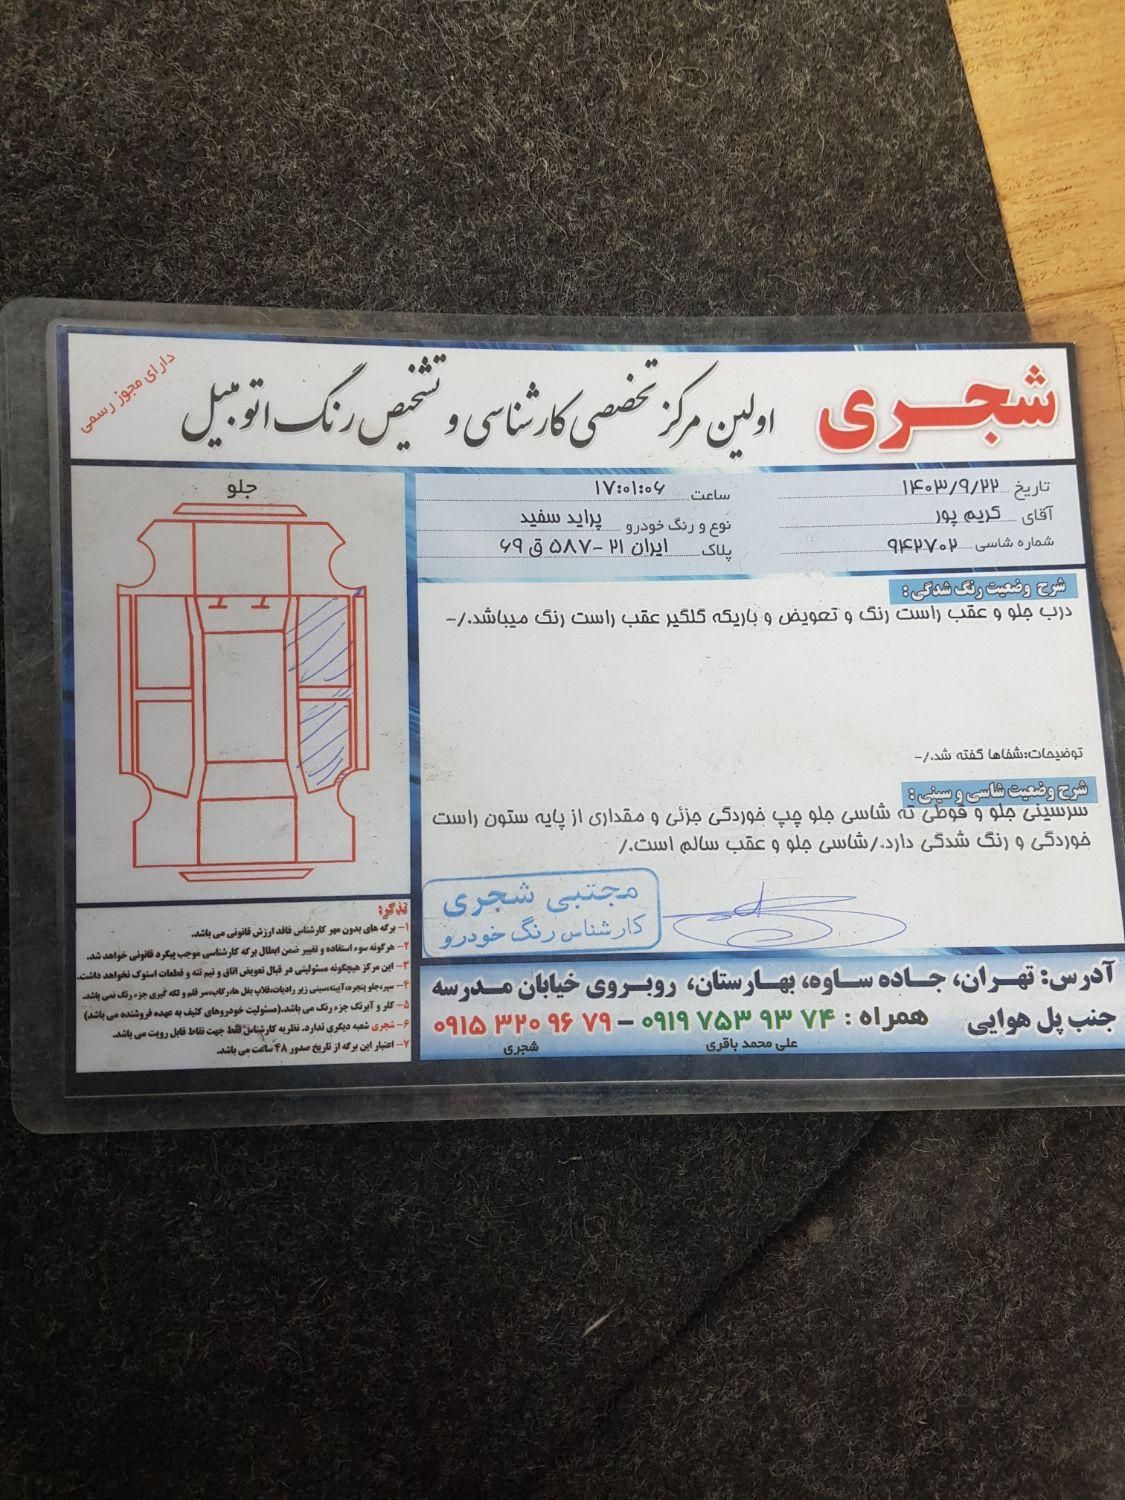 شجری
اولین مرکز تخصصی کارشناسی و تشخیص رنگ اتومبیل
دارای مجوز رسمی
تاریخ ۱۴۰۳/۹/۲۲ ساعت ۱۷:۰۱:۰۶
آقای کریم پور نوع و رنگ خودرو پراید سفید
شماره شاسی ۹۴۲۷۰۲ پلاک ایران ۲۱ -۵۸۷ ق ۶۹
جلو
شرح وضعیت رنگ شدگی :
درب جلو و عقب راست رنگ و تعویض و باریکه گلگیر عقب راست رنگ میباشد./-
توضیحات:شفاها گفته شد./-
شرح وضعیت شاسی و سینی :
سرسینی جلو و قوطی ته شاسی جلو چپ خوردگی جزئی و مقداری از پایه ستون راست
خوردگی و رنگ شدگی دارد./شاسی جلو و عقب سالم است./
مجتبی شجری
کارشناس رنگ خودرو
تذکر:
۱- برگه های بدون مهر کارشناس فاقد ارزش قانونی می باشد.
۲- هرگونه سوء استفاده و تغییر ضمن ابطال برگه کارشناسی موجب پیگرد قانونی خواهد شد.
۳- این مرکز هیچگونه مسئولیتی در قبال تعویض اتاق و نیم تنه و قطعات استوک نخواهد داشت.
۴- سپر،جلو پنجره،آیینه،سینی زیر رادیات،قلاب بغل ها،رکاب،سر قلم و لکه گیری جزء رنگ نمی باشد.
۵- کلر و آبرنگ جزء رنگ می باشد.(مسئولیت خودروهای کثیف به عهده فروشنده می باشد)
۶- شجری شعبه دیگری ندارد. نظریه کارشناس فقط جهت نقاط قابل رویت می باشد.
۷- اعتبار این برگه از تاریخ صدور ۴۸ ساعت می باشد.
آدرس: تهران، جاده ساوه، بهارستان، روبروی خیابان مدرسه
جنب پل هوایی همراه : ۰۹۱۹ ۷۵۳ ۹۳ ۷۴ - ۰۹۱۵ ۳۲۰ ۹۶ ۷۹
علی محمد باقری شجری